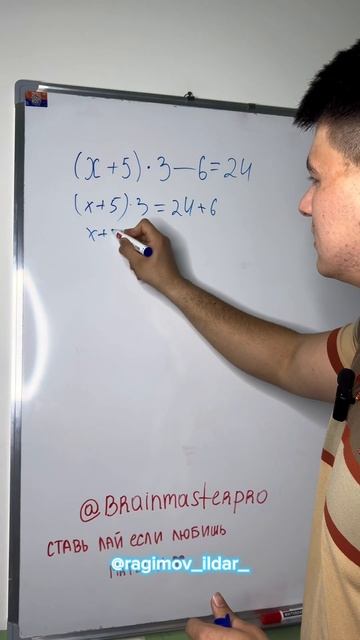 (x+5)·3−6=24
(x+5)·3=24+6
x+
@Brainmasterpro
ставь лай если любишь
@ragimov_ildar_